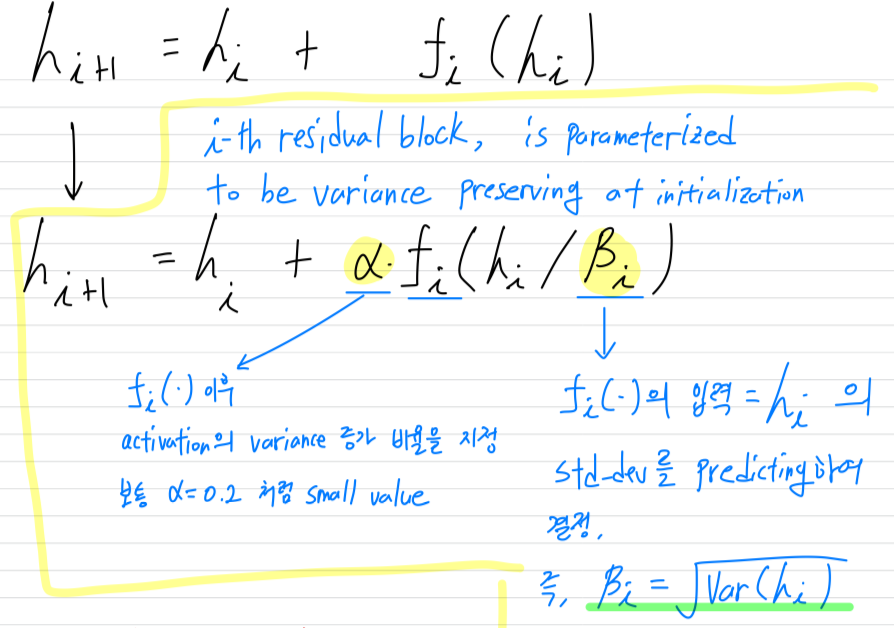 h_{i+1} = h_i + f_i(h_i)
i-th residual block, is parameterized
to be variance preserving at initialization
h_{i+1} = h_i + α·f_i(h_i / β_i)
f_i(·) 이후
activation의 variance 증가 비율을 지정
보통 α=0.2 처럼 small value
f_i(·)의 입력 = h_i 의
std-dev를 predicting하여
결정.
즉, β_i = √Var(h_i)